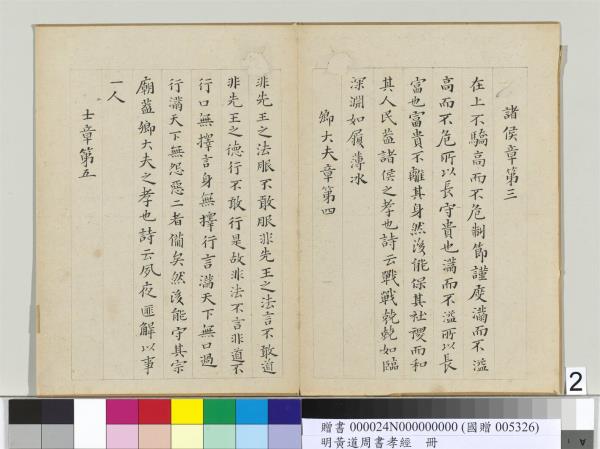 諸侯章第三
在上不驕高而不危制節謹度滿而不溢
高而不危所以長守貴也滿而不溢所以長
富也富貴不離其身然後能保其社稷而和
其人民蓋諸侯之孝也詩云戰戰兢兢如臨
深淵如履薄冰
鄉大夫章第四
非先王之法服不敢服非先王之法言不敢道
非先王之德行不敢行是故非法不言非道不
行口無擇言身無擇行言滿天下無口過
行滿天下無怨惡二者備矣然後能守其宗
廟蓋鄉大夫之孝也詩云夙夜匪解以事
一人
士章第五
2
贈書 000024N000000000 (國贈 005326)
明黃道周書孝經 冊